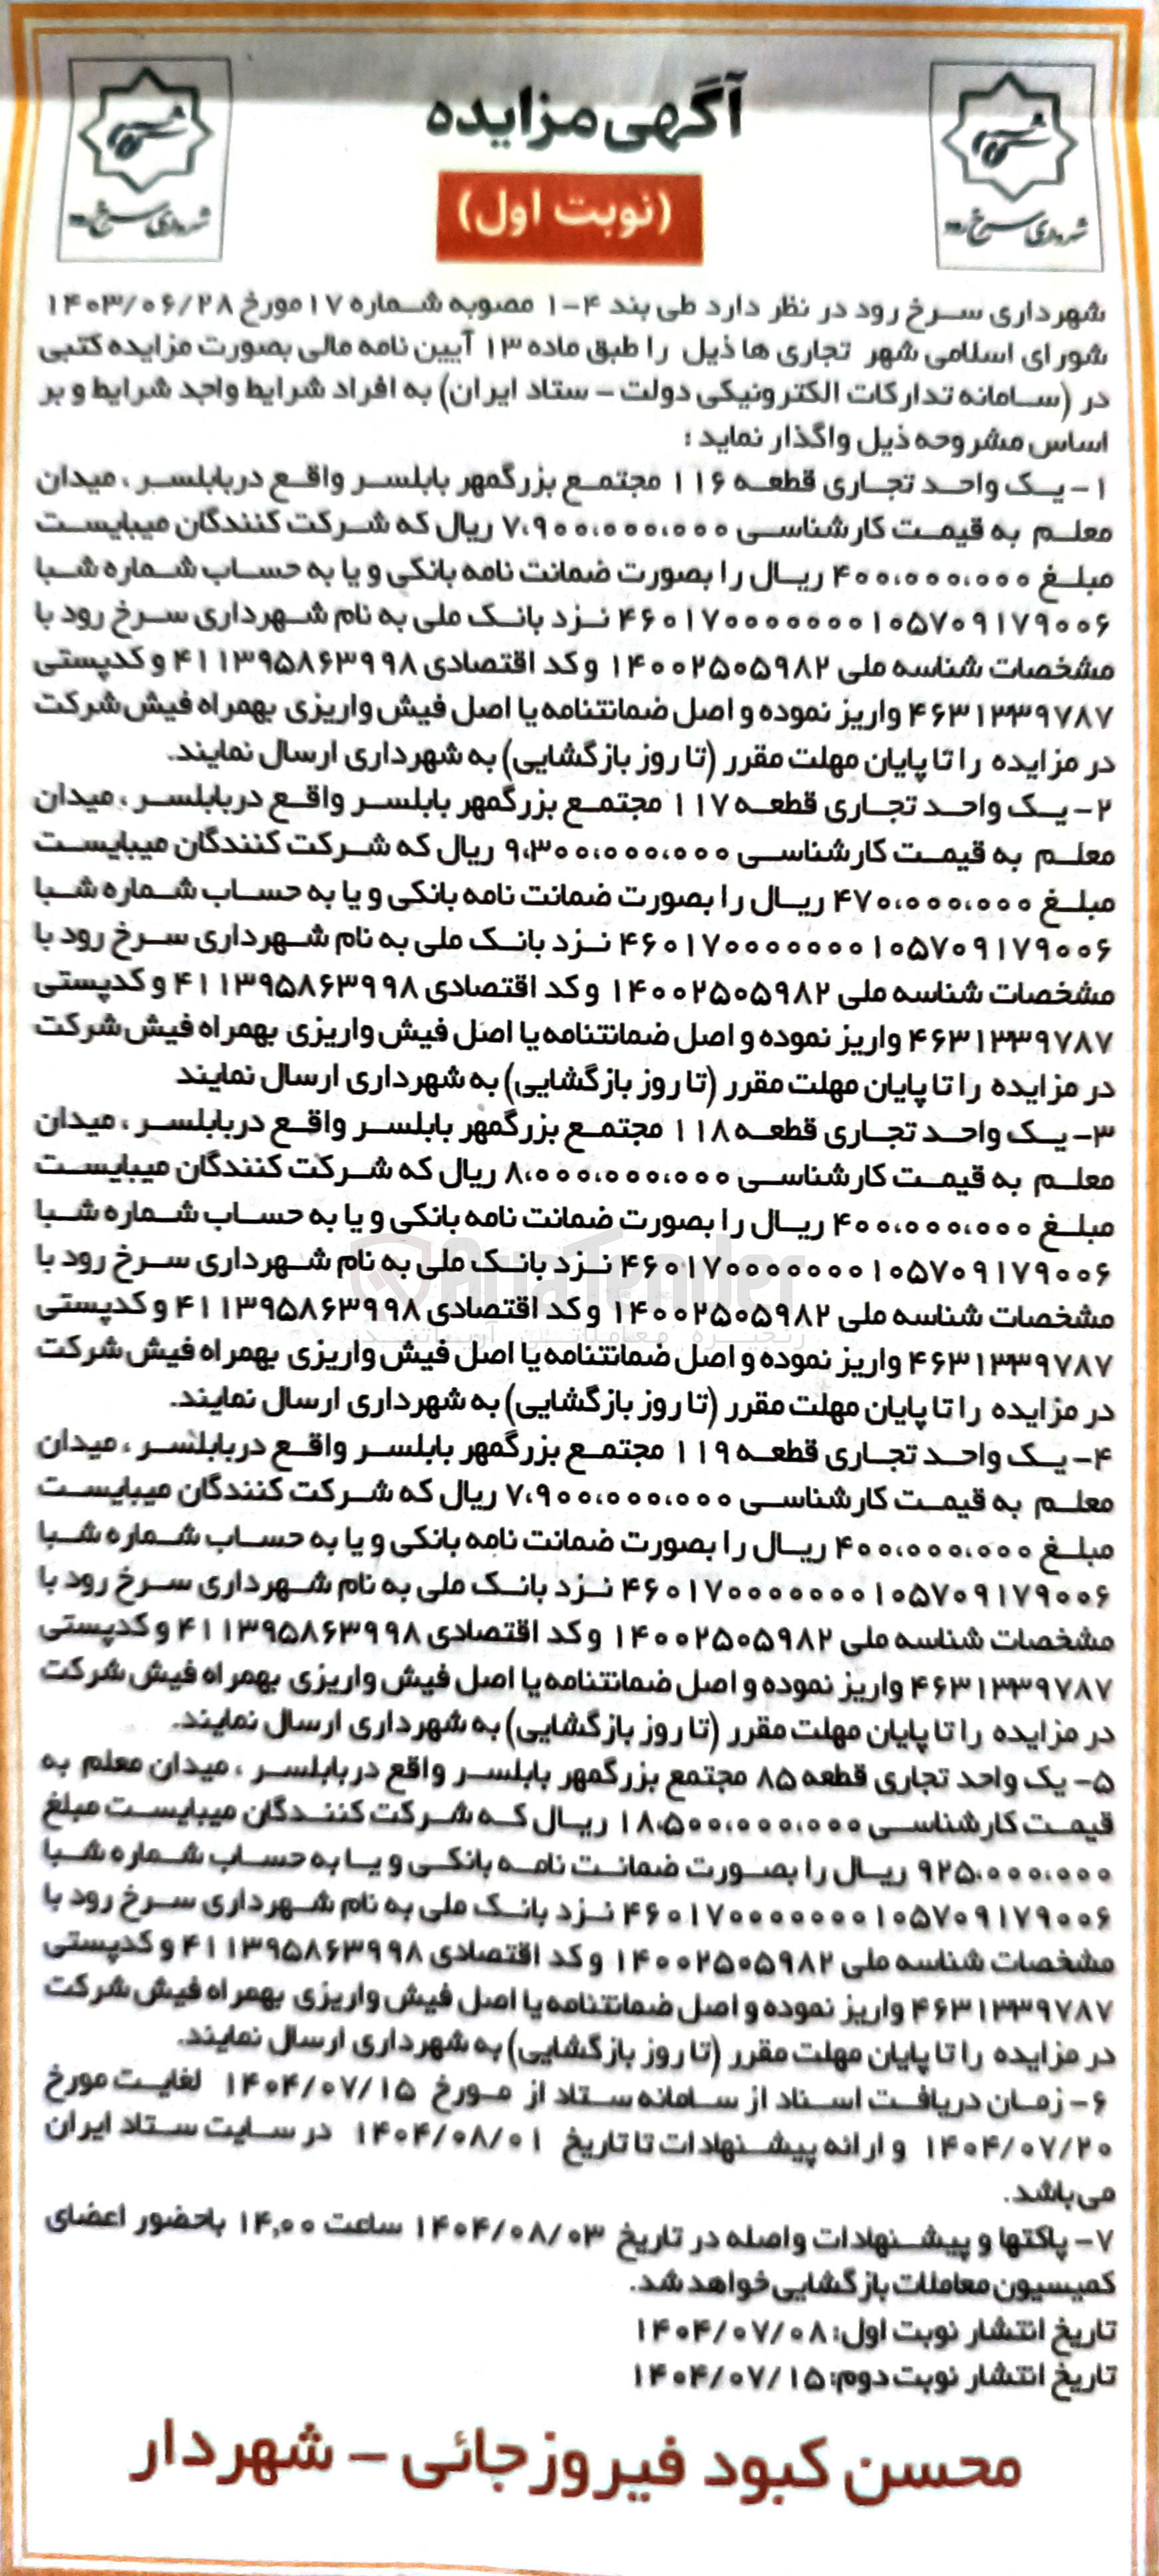 آگهی مزایده
(نوبت اول)
شهرداری سرخ رود
شهرداری سرخ رود
شهرداری سرخ رود در نظر دارد طی بند ۴-۱ مصوبه شماره ۱۷ مورخ ۱۴۰۳/۰۶/۲۸
شورای اسلامی شهر تجاری ها ذیل را طبق ماده ۱۳ آیین نامه مالی بصورت مزایده کتبی
در (سامانه تدارکات الکترونیکی دولت – ستاد ایران) به افراد شرایط واجد شرایط و بر
اساس مشروحه ذیل واگذار نماید :
۱- یک واحد تجاری قطعه ۱۱۶ مجتمع بزرگمهر بابلسر واقع در بابلسر ، میدان
معلم به قیمت کارشناسی ۷،۹۰۰،۰۰۰،۰۰۰ ریال که شرکت کنندگان میبایست
مبلغ ۴۰۰،۰۰۰،۰۰۰ ریال را بصورت ضمانت نامه بانکی و یا به حساب شماره شبا
۴۶۰۱۷۰۰۰۰۰۰۰۱۰۵۷۰۹۱۷۹۰۰۶ نزد بانک ملی به نام شهرداری سرخ رود با
مشخصات شناسه ملی ۱۴۰۰۲۵۰۵۹۸۲ و کد اقتصادی ۴۱۱۳۹۵۸۶۳۹۹۸ و کدپستی
۴۶۳۱۳۳۹۷۸۷ واریز نموده و اصل ضمانتنامه یا اصل فیش واریزی بهمراه فیش شرکت
در مزایده را تا پایان مهلت مقرر (تا روز بازگشایی) به شهرداری ارسال نمایند.
۲- یک واحد تجاری قطعه ۱۱۷ مجتمع بزرگمهر بابلسر واقع در بابلسر ، میدان
معلم به قیمت کارشناسی ۹،۳۰۰،۰۰۰،۰۰۰ ریال که شرکت کنندگان میبایست
مبلغ ۴۷۰،۰۰۰،۰۰۰ ریال را بصورت ضمانت نامه بانکی و یا به حساب شماره شبا
۴۶۰۱۷۰۰۰۰۰۰۰۱۰۵۷۰۹۱۷۹۰۰۶ نزد بانک ملی به نام شهرداری سرخ رود با
مشخصات شناسه ملی ۱۴۰۰۲۵۰۵۹۸۲ و کد اقتصادی ۴۱۱۳۹۵۸۶۳۹۹۸ و کدپستی
۴۶۳۱۳۳۹۷۸۷ واریز نموده و اصل ضمانتنامه یا اصل فیش واریزی بهمراه فیش شرکت
در مزایده را تا پایان مهلت مقرر (تا روز بازگشایی) به شهرداری ارسال نمایند
۳- یک واحد تجاری قطعه ۱۱۸ مجتمع بزرگمهر بابلسر واقع در بابلسر ، میدان
معلم به قیمت کارشناسی ۸،۰۰۰،۰۰۰،۰۰۰ ریال که شرکت کنندگان میبایست
مبلغ ۴۰۰،۰۰۰،۰۰۰ ریال را بصورت ضمانت نامه بانکی و یا به حساب شماره شبا
۴۶۰۱۷۰۰۰۰۰۰۰۱۰۵۷۰۹۱۷۹۰۰۶ نزد بانک ملی به نام شهرداری سرخ رود با
AriaTender
مشخصات شناسه ملی ۱۴۰۰۲۵۰۵۹۸۲ و کد اقتصادی ۴۱۱۳۹۵۸۶۳۹۹۸ و کدپستی
زنجیره معاملاتی آریاتندر
۴۶۳۱۳۳۹۷۸۷ واریز نموده و اصل ضمانتنامه یا اصل فیش واریزی بهمراه فیش شرکت
در مزایده را تا پایان مهلت مقرر (تا روز بازگشایی) به شهرداری ارسال نمایند.
۴- یک واحد تجاری قطعه ۱۱۹ مجتمع بزرگمهر بابلسر واقع در بابلسر ، میدان
معلم به قیمت کارشناسی ۷،۹۰۰،۰۰۰،۰۰۰ ریال که شرکت کنندگان میبایست
مبلغ ۴۰۰،۰۰۰،۰۰۰ ریال را بصورت ضمانت نامه بانکی و یا به حساب شماره شبا
۴۶۰۱۷۰۰۰۰۰۰۰۱۰۵۷۰۹۱۷۹۰۰۶ نزد بانک ملی به نام شهرداری سرخ رود با
مشخصات شناسه ملی ۱۴۰۰۲۵۰۵۹۸۲ و کد اقتصادی ۴۱۱۳۹۵۸۶۳۹۹۸ و کدپستی
۴۶۳۱۳۳۹۷۸۷ واریز نموده و اصل ضمانتنامه یا اصل فیش واریزی بهمراه فیش شرکت
در مزایده را تا پایان مهلت مقرر (تا روز بازگشایی) به شهرداری ارسال نمایند.
۵- یک واحد تجاری قطعه ۸۵ مجتمع بزرگمهر بابلسر واقع در بابلسر ، میدان معلم به
قیمت کارشناسی ۱۸،۵۰۰،۰۰۰،۰۰۰ ریال که شرکت کنندگان میبایست مبلغ
۹۲۵،۰۰۰،۰۰۰ ریال را بصورت ضمانت نامه بانکی و یا به حساب شماره شبا
۴۶۰۱۷۰۰۰۰۰۰۰۱۰۵۷۰۹۱۷۹۰۰۶ نزد بانک ملی به نام شهرداری سرخ رود با
مشخصات شناسه ملی ۱۴۰۰۲۵۰۵۹۸۲ و کد اقتصادی ۴۱۱۳۹۵۸۶۳۹۹۸ و کدپستی
۴۶۳۱۳۳۹۷۸۷ واریز نموده و اصل ضمانتنامه یا اصل فیش واریزی بهمراه فیش شرکت
در مزایده را تا پایان مهلت مقرر (تا روز بازگشایی) به شهرداری ارسال نمایند.
۶- زمان دریافت اسناد از سامانه ستاد از مورخ ۱۴۰۴/۰۷/۱۵ لغایت مورخ
۱۴۰۴/۰۷/۲۰ و ارائه پیشنهادات تا تاریخ ۱۴۰۴/۰۸/۰۱ در سایت ستاد ایران
می‌باشد.
۷- پاکتها و پیشنهادات واصله در تاریخ ۱۴۰۴/۰۸/۰۳ ساعت ۱۴,۰۰ باحضور اعضای
کمیسیون معاملات بازگشایی خواهد شد.
تاریخ انتشار نوبت اول: ۱۴۰۴/۰۷/۰۸
تاریخ انتشار نوبت دوم: ۱۴۰۴/۰۷/۱۵
محسن کبود فیروزجائی – شهردار